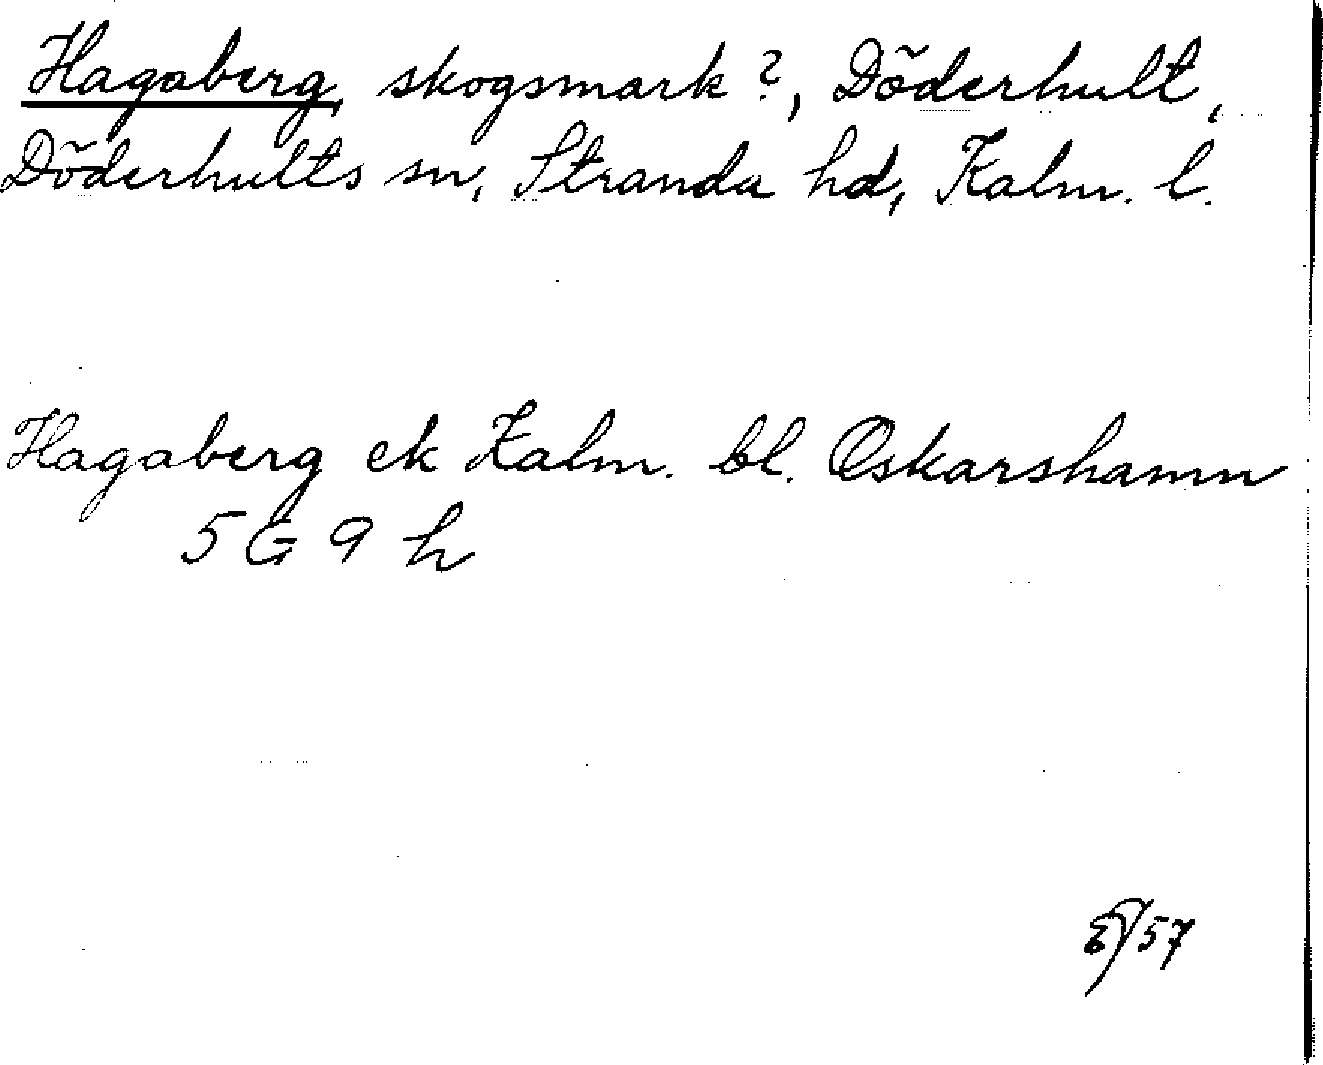 Hagaberg, skogsmark?, Döderhult,
Döderhults sn, Stranda hd, Kalm. l.
Hagaberg ek Kalm. bl. Oskarshamn
5 G 9 h
/57